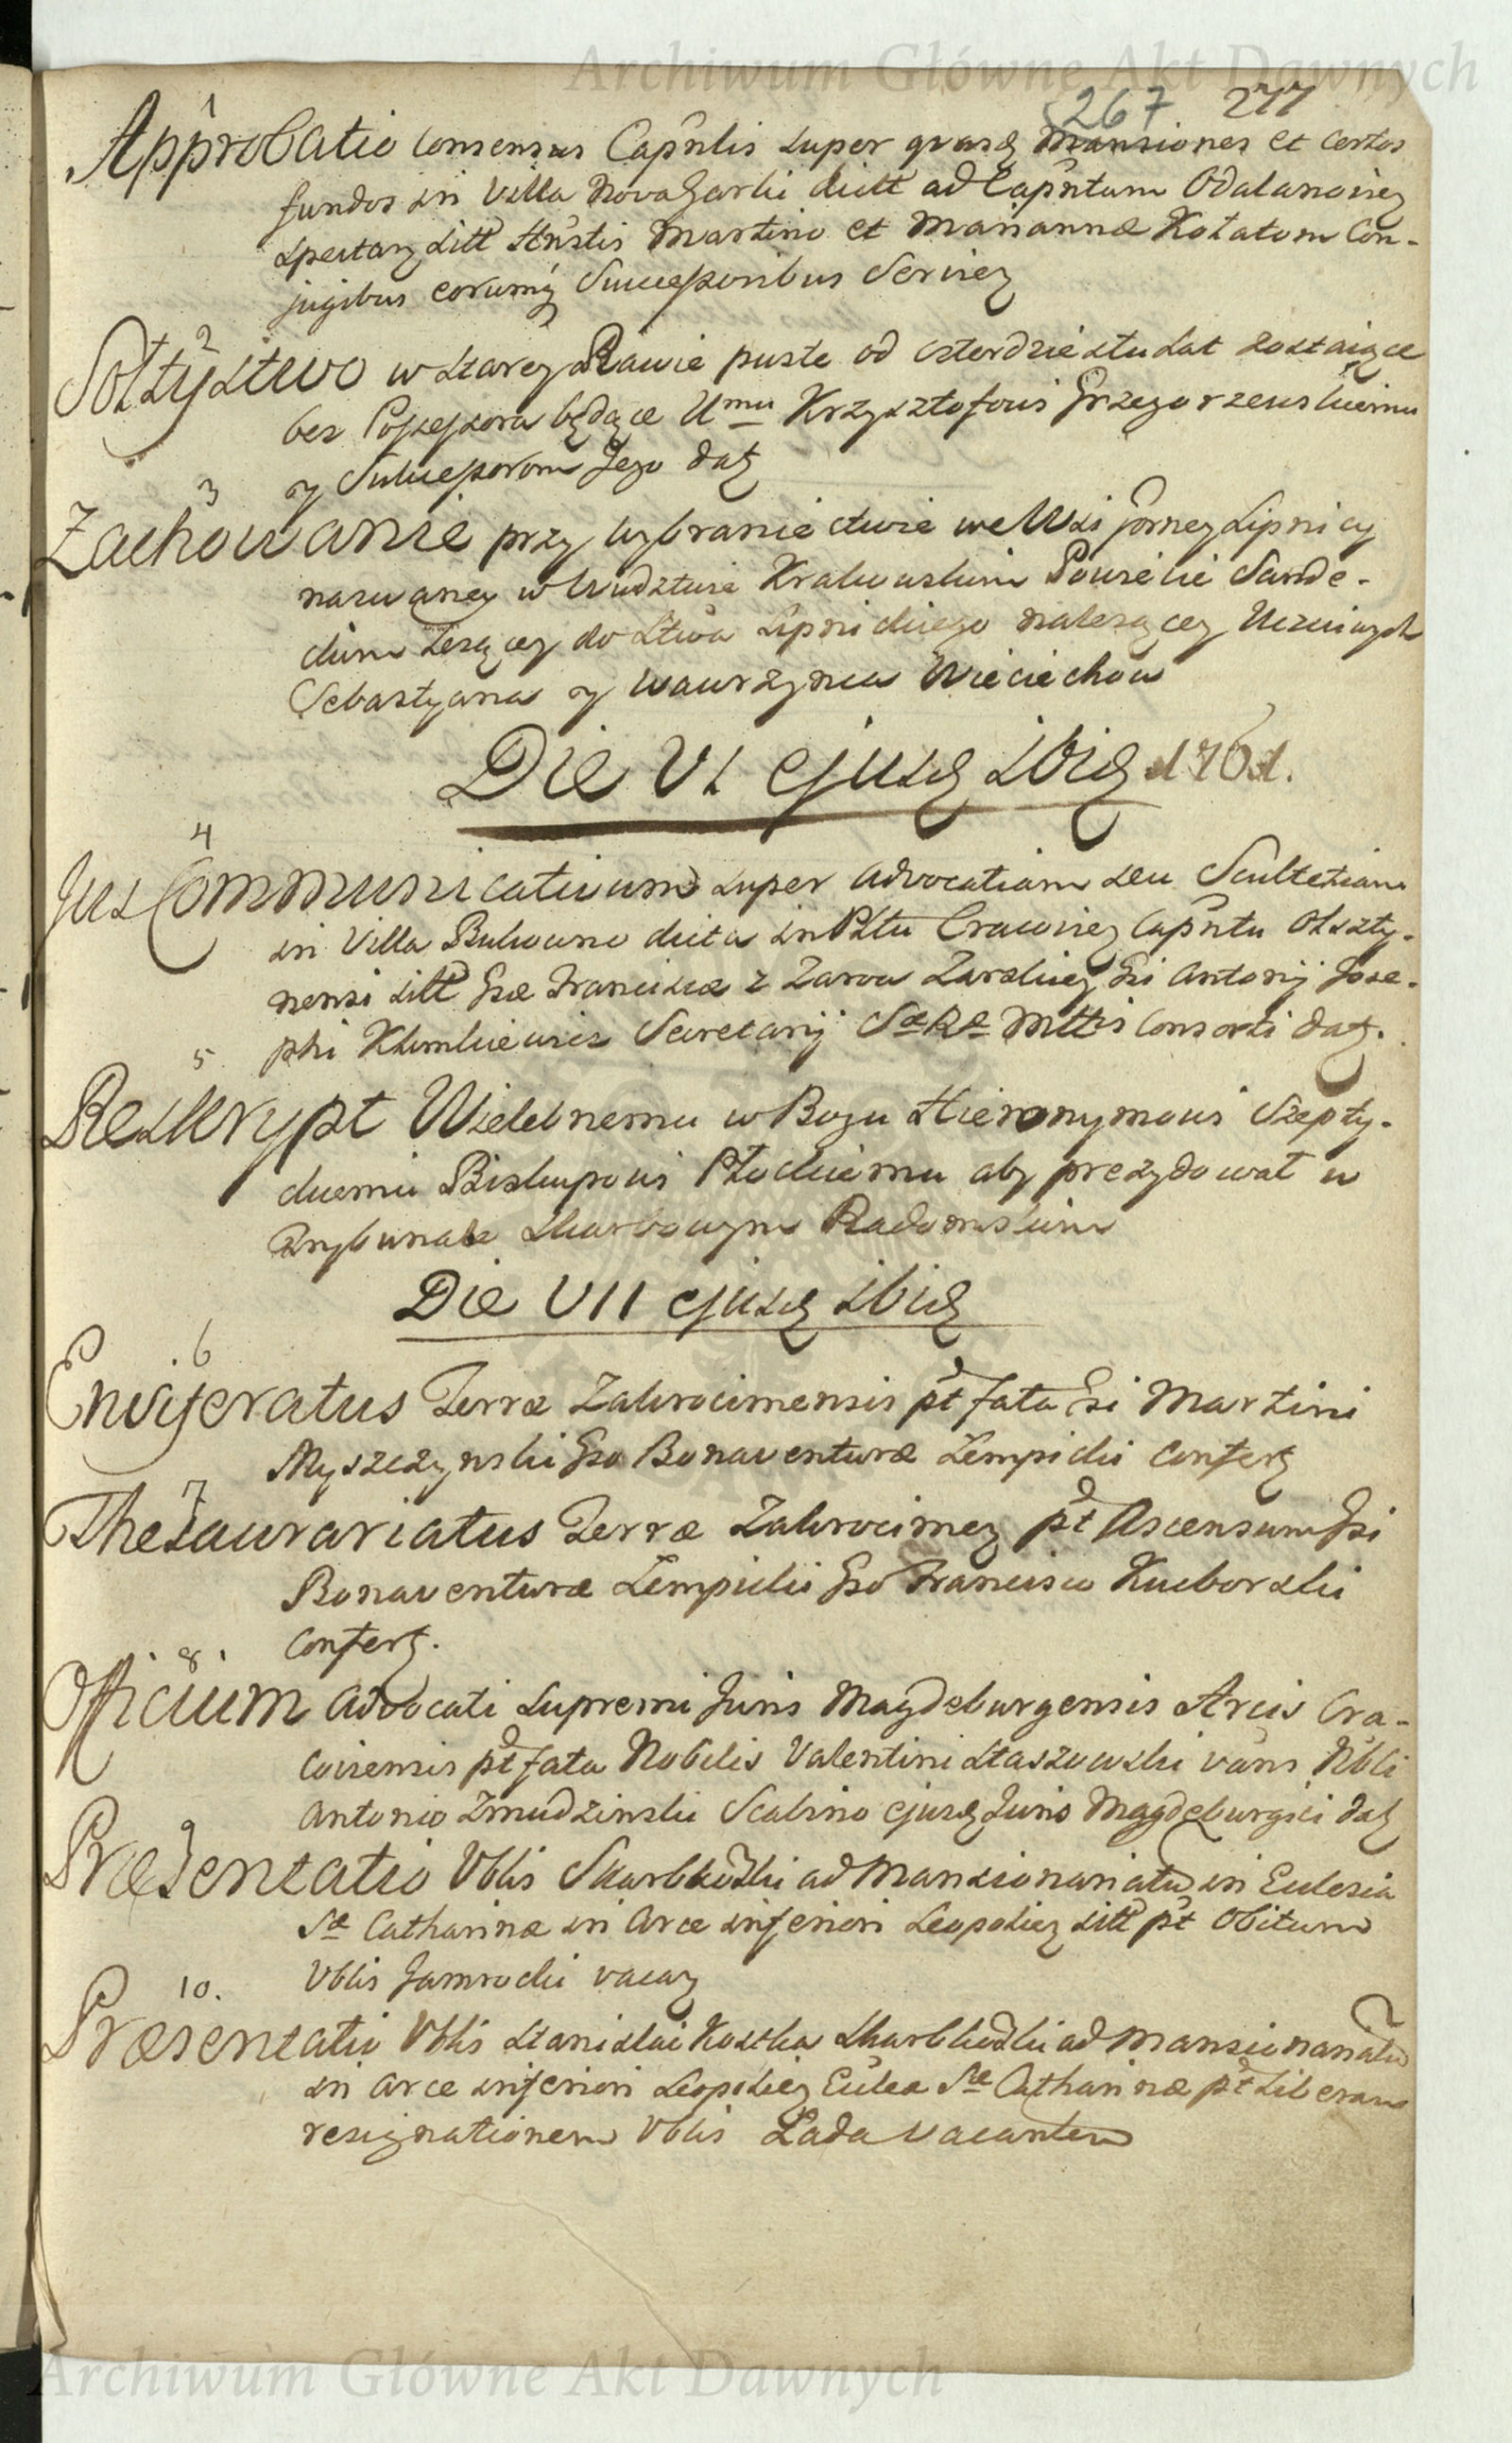 Archiwum Główne Akt Dawnych
267 277
1
Approbatio Consensus Capnlis super quasd Mansiones et certos
fundos in Villa Nova Garki dictt ad Capntum Odalanoviej
spectan sitt Hnstis Martino et Mariannæ Kołatom Con-
jugibus eorumq Successoribus Serviej
2
Sołtystwo w Starey Rawie puste od czterdziestu lat zostaiące
bez Possessora będące Umu Krzysztofowi Grzegorzewskiemu
y Sukcessorom Jego dat
3
Zachowanie przy Wybraniectwie we Wsi Gorney Lipnicy
nazwaney w Wwdztwie Krakowskim Powiecie Sande-
ckim leżącey do Stwa Lipnickiego należącey Uczciwych
Sebastyana y Wawrzynca Wieciechow
Die VI ejusd ibid 1761.
4
Jus Communicativum super Advocatiam seu Scultetiam
in Villa Bukowno dicta in Pttu Cracoviej Capntu Olszty-
nensi sitt Gsæ Franciscæ z Zarva Zarskiej Gsi Antonij Jose-
phi Klimkiewicz Secretarij Sæ Ræ Mttis Consorti dat.
5
Reskrypt Wielebnemu w Bogu Hieronymowi Szepty-
ckiemu Biskupowi Płockiemu aby prezydował w
Trybunale Skarbowym Radomskim
Die VII ejusd ibid
6
Ensiferatus Terræ Zakrocimensis pt fata Gsi Martini
Myszczynski Gso Bonaventuræ Lempicki Confert
7
Thesaurariatus Terræ Zakrocimej pt Ascensum Gsi
Bonaventuræ Lempicki Gso Francisco Kueborski
Confert.
8.
Officium Advocati Supremi Juris Magdeburgensis Arcis Cra-
coviensis pt fata Nobilis Valentini Staszowski vans Nbli
Antonio Zmudzinski Scabino ejusd Juris Magdeburgsi dat
9
Præsentatio Vblis Skarbkoski ad Mansionariatu in Eclesia
Sæ Catharinæ in Arce inferiori Leopoliej sitt pt Obitum
Vblis Jamrocki vacan
10.
Præsentatio Vblis Stanislai Kostka Skarbkoski ad Mansionariatu
in Arce inferiori Leopoliej Eclea Sæ Catharinæ pt Liberam
resignationem Vblis Łada vacantem
Archiwum Główne Akt Dawnych